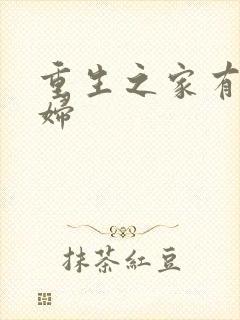 重生之家有
婦
抹茶紅豆